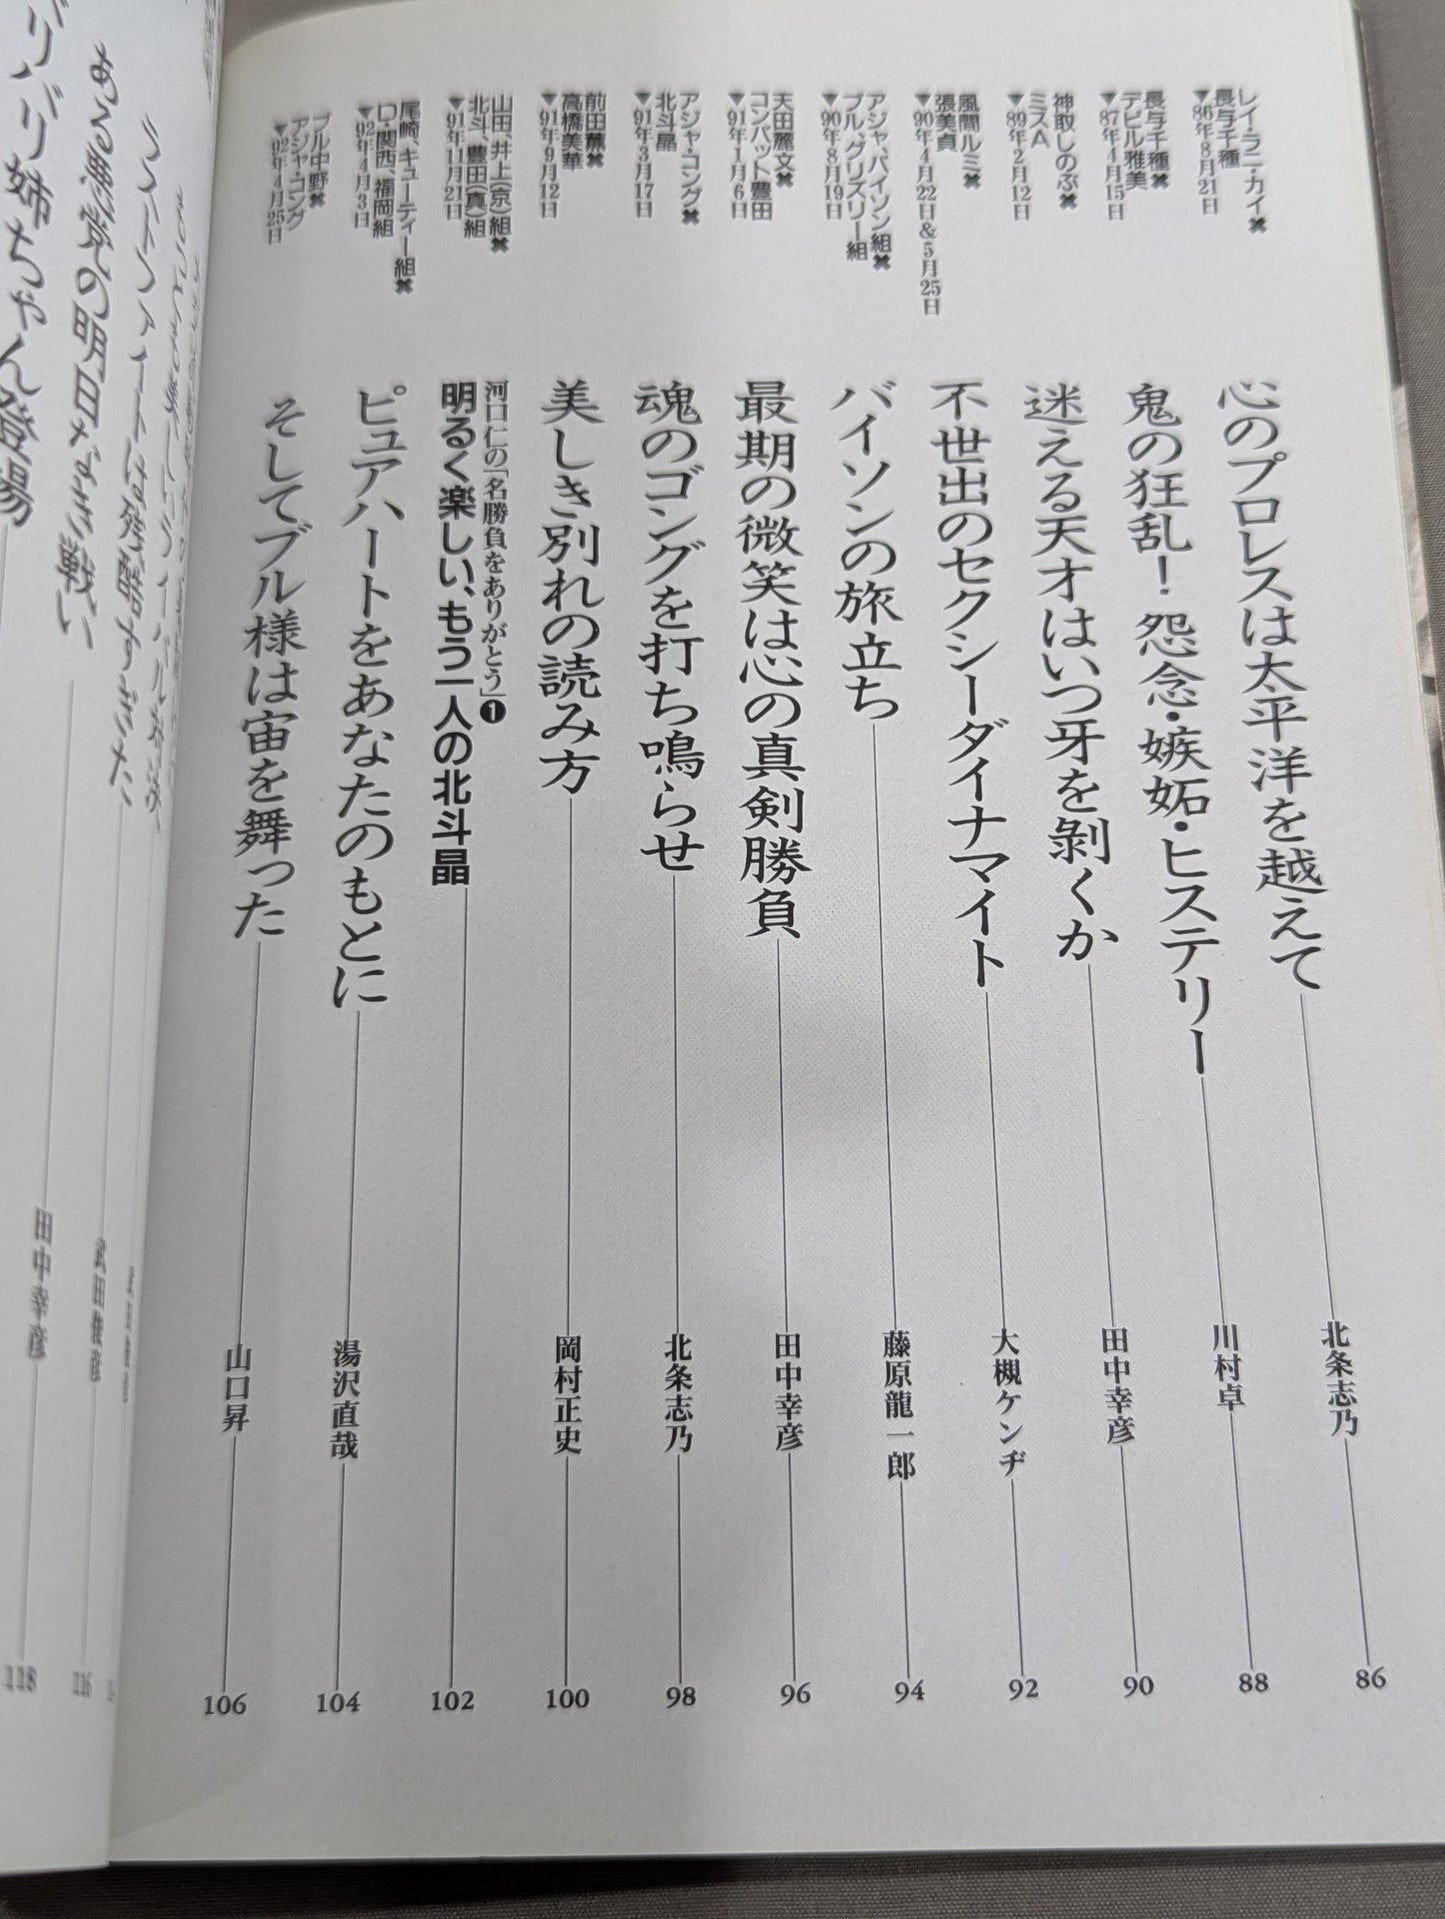 レイ・ラニ・カイ✖
長与千種
▼86年8月21日
心のプロレスは太平洋を越えて
北条志乃
86
長与千種✖
デビル雅美
▼87年4月15日
鬼の狂乱！怨念・嫉妬・ヒステリー
川村卓
88
神取しのぶ✖
ミスA
▼89年2月12日
迷える天才はいつ牙を剝くか
田中幸彦
90
風間ルミ✖
張美貞
▼90年4月22日&5月25日
不世出のセクシーダイナマイト
大槻ケンヂ
92
アジャ、バイソン組✖
ブル、グリズリー組
▼90年8月19日
バイソンの旅立ち
藤原龍一郎
94
天田麗文✖
コンバット豊田
▼91年1月6日
最期の微笑は心の真剣勝負
田中幸彦
96
アジャ・コング✖
北斗晶
▼91年3月17日
魂のゴングを打ち鳴らせ
北条志乃
98
前田薫✖
高橋美華
▼91年9月12日
美しき別れの読み方
岡村正史
100
山田、井上(京)組✖
北斗、豊田(真)組
▼91年11月21日
河口仁の「名勝負をありがとう」❶
明るく楽しい、もう一人の北斗晶
102
尾崎、キューティー組✖
D・関西、福岡組
▼92年4月3日
ピュアハートをあなたのもとに
湯沢直哉
104
ブル中野✖
アジャ・コング
▼92年4月25日
そしてブル様は宙を舞った
山口昇
106
ラストファイトは残酷すぎた
116
ある悪党の明日なき戦い
武田
田中幸彦
118
バリバリ姉ちゃん登場